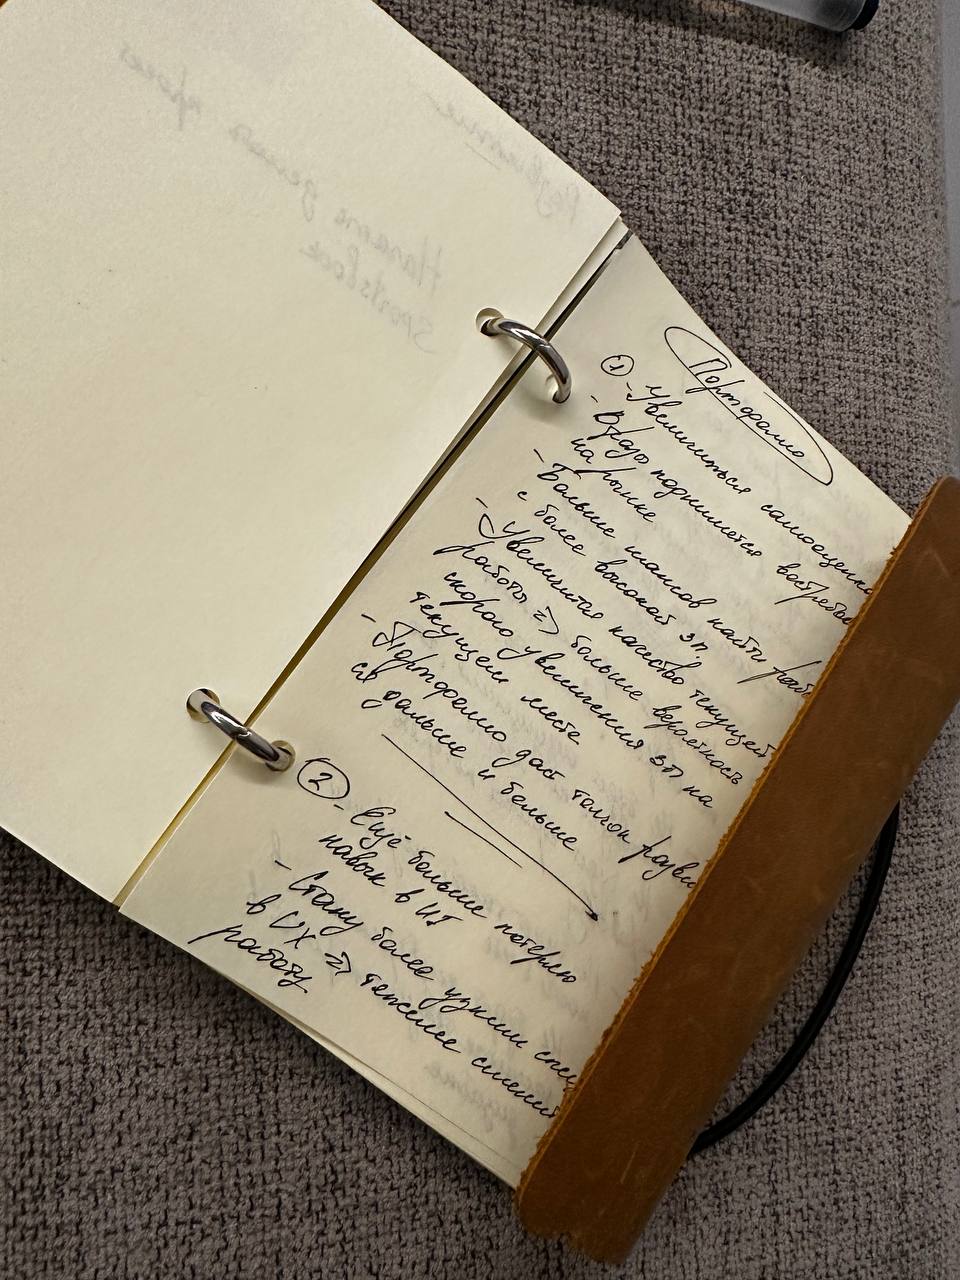 Портфолио
① - Увеличиться самооценка
- В разо поднимется востребов
на рынке
- Больше шансов найти раб
с более высокой зп.
- Увеличится качество текущей
работы => больше вероятность
скорого увеличения зп на
текущем месте
- Портфолио даст толчок разви
ся дальше и больше
② - Ещё больше потеряю
навык в UI
- Стану более узким спец
в UX => тяжелее сменить
работу